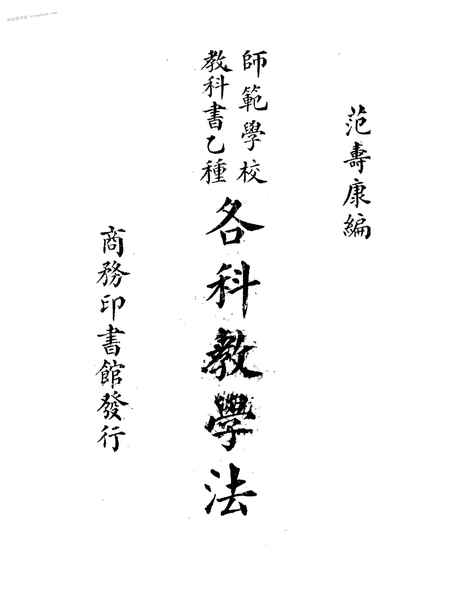 范壽康編
師範學校
教科書乙種
各科教學法
商務印書館發行